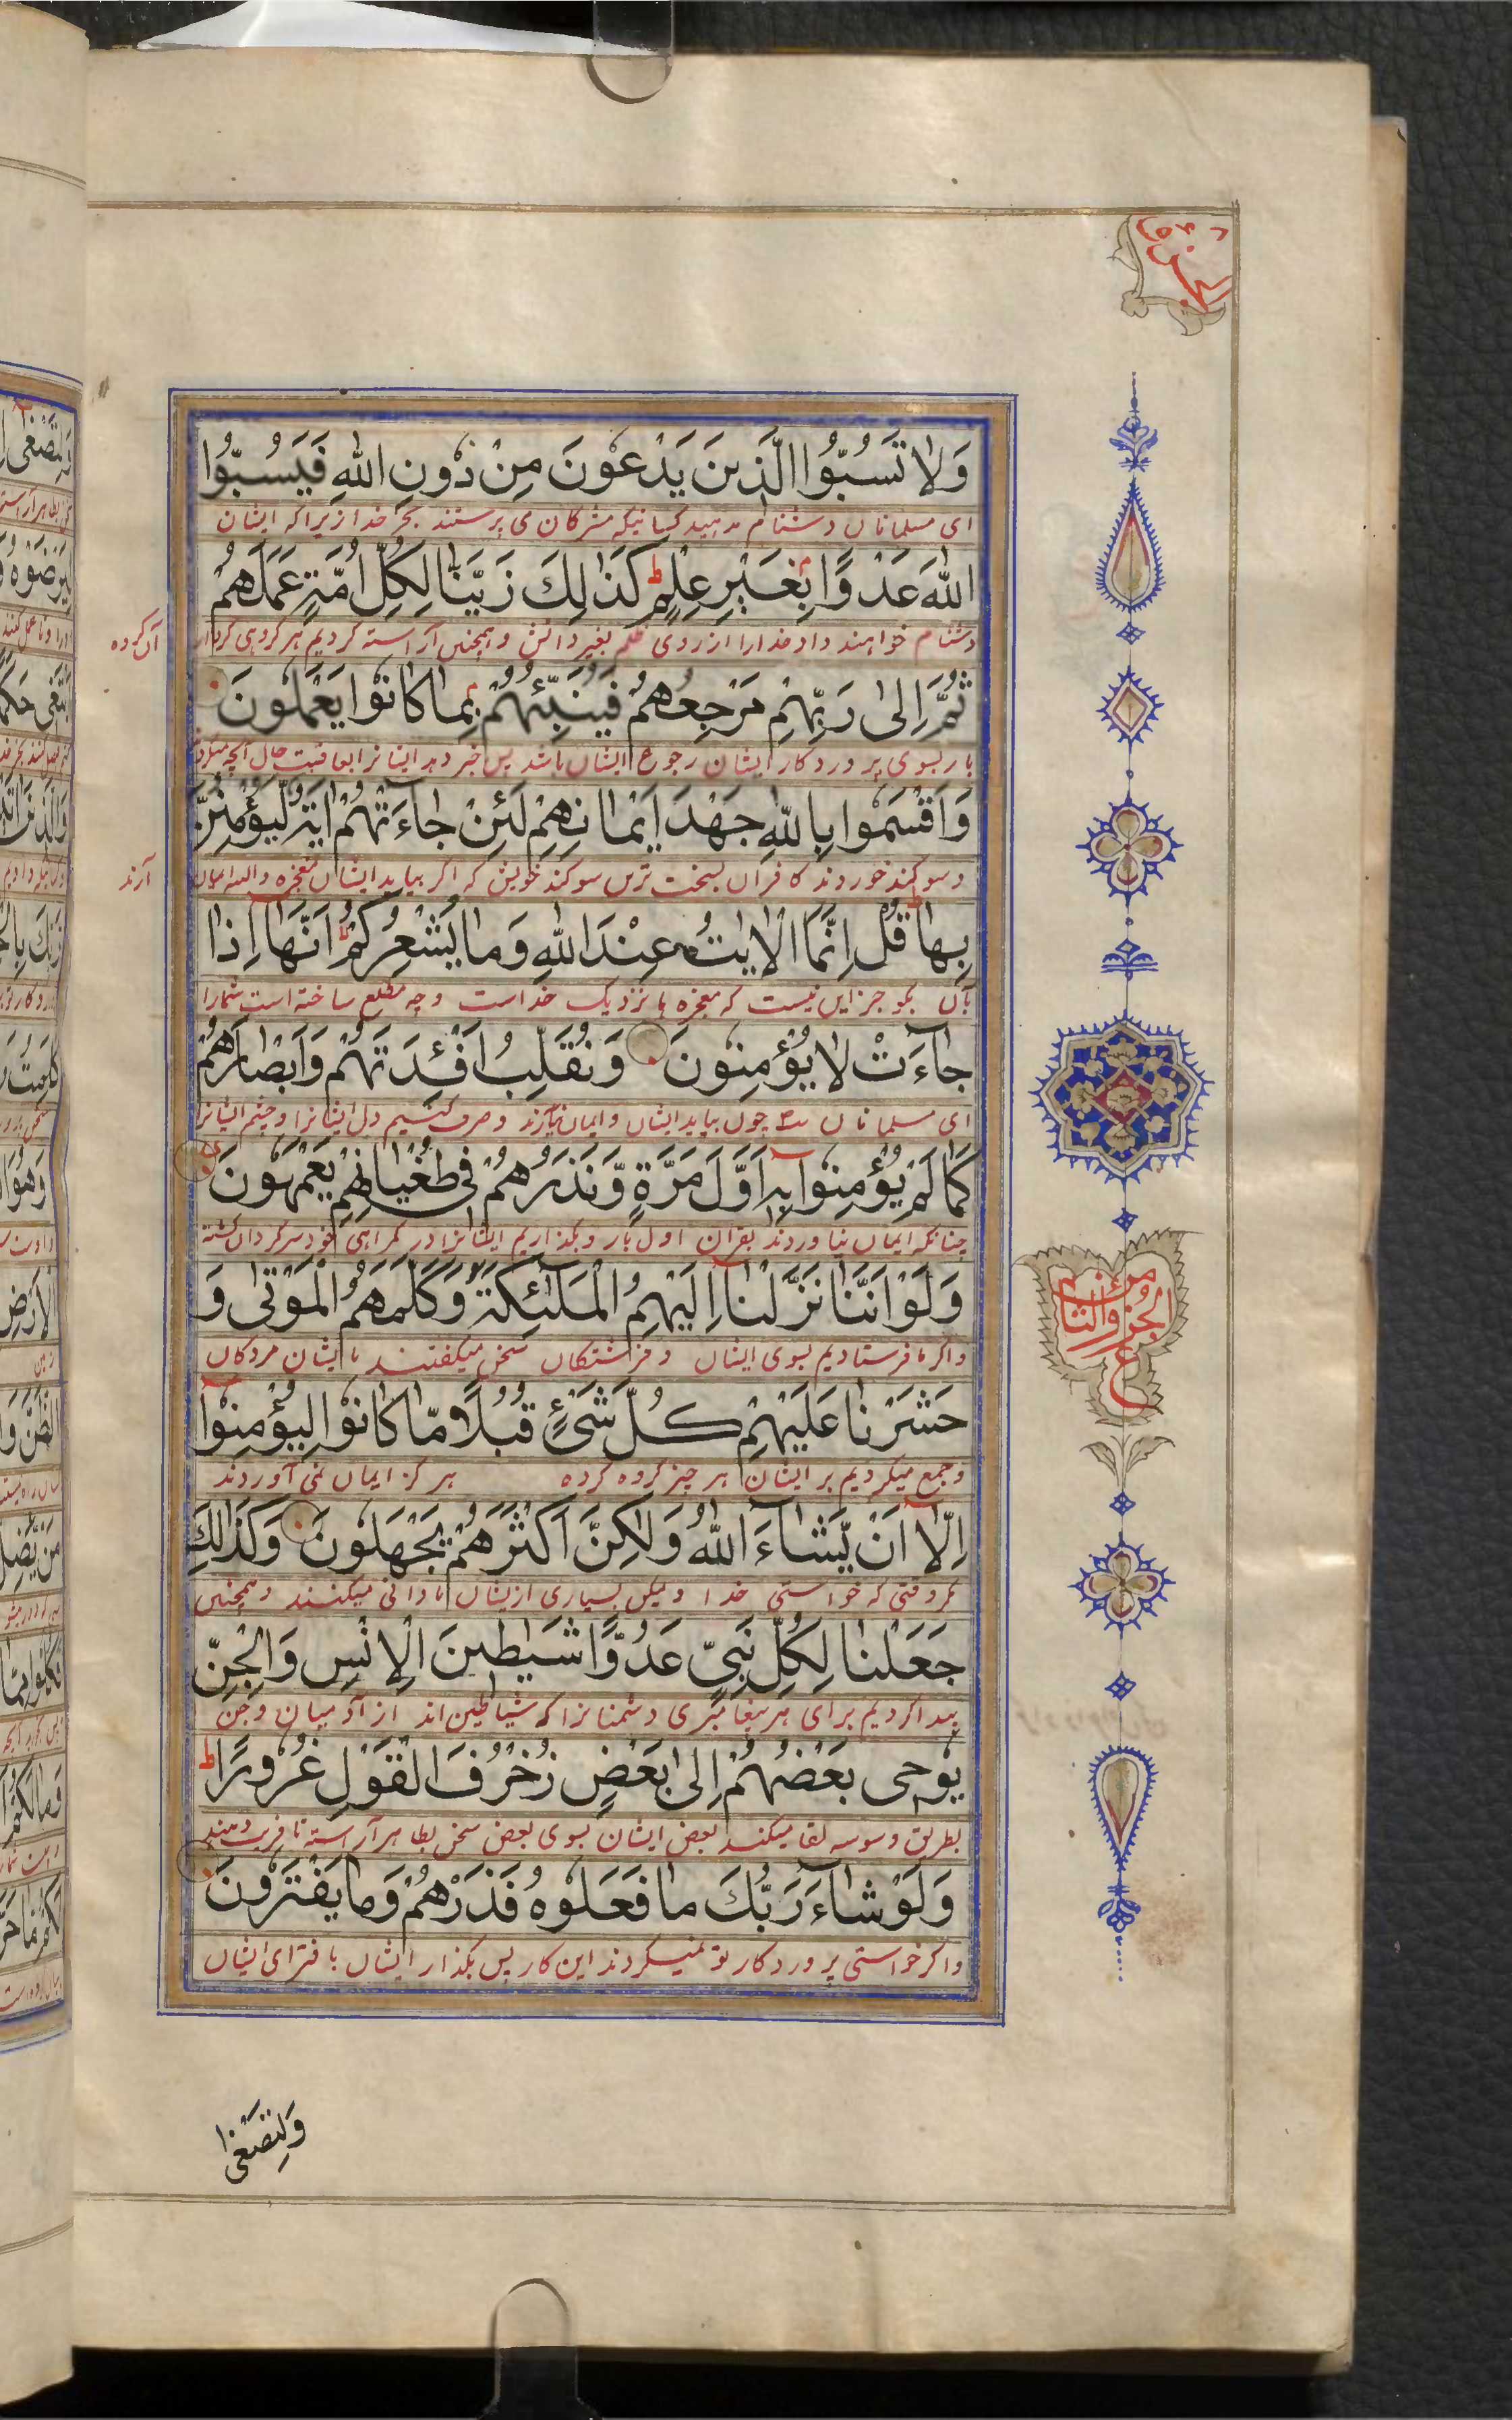 الجزو ٨
وَلَا تَسُبُّوا الَّذِينَ يَدْعُونَ مِنْ دُونِ اللّٰهِ فَيَسُبُّوا
ای مسلمانان دشنام مدهید کسانیکه مشرکان می پرستند بجز خدا زیرا که ایشان
اللّٰهَ عَدْوًا بِغَيْرِ عِلْمٍ ط كَذٰلِكَ زَيَّنَّا لِكُلِّ اُمَّةٍ عَمَلَهُمْ
دشنام خواهند داد خدارا از روی ظلم بغیر دانش و همچنین آراسته کردیم هر گروهی کردار
آن گروه
ثُمَّ اِلٰى رَبِّهِمْ مَرْجِعُهُمْ فَيُنَبِّئُهُمْ بِمَا كَانُوا يَعْمَلُونَ
باز بسوی پروردکار ایشان رجوع ایشان باشد پس خبر دهد ایشانرا بعاقبت حال آنچه میکردند
وَاَقْسَمُوا بِاللّٰهِ جَهْدَ اَيْمَانِهِمْ لَئِنْ جَاءَتْهُمْ اٰيَةٌ لَيُؤْمِنُنَّ
و سوکند خوردند کافران بسخت ترین سوکند خویش که اگر بیاید ایشان معجزه والبته ایمان
آرند
بِهَا قُلْ اِنَّمَا الْاٰيٰتُ عِنْدَ اللّٰهِ وَمَا يُشْعِرُكُمْ اَنَّهَا اِذَا
بآن بگو جز این نیست که معجزه ها نزدیک خداست و چه مطلع ساخته است شمارا
جَاءَتْ لَا يُؤْمِنُونَ وَنُقَلِّبُ اَفْئِدَتَهُمْ وَاَبْصَارَهُمْ
ای مسلمانان که چون بیاید ایشان و ایمان نیارند و صرف کنیم دل ایشانرا و چشم ایشانرا
كَمَا لَمْ يُؤْمِنُوا بِهِ اَوَّلَ مَرَّةٍ وَّنَذَرُهُمْ فِي طُغْيَانِهِمْ يَعْمَهُونَ
چنانکه ایمان نیاوردند بقران اول بار و بکذاریم ایشانرا در کمراهی خود سرکردان کشته
وَلَوْ اَنَّنَا نَزَّلْنَا اِلَيْهِمُ الْمَلٰئِكَةَ وَكَلَّمَهُمُ الْمَوْتٰى وَ
واکر ما فرستادیم بسوی ایشان و فرشتکان سخن میکفتند با ایشان مردکان
حَشَرْنَا عَلَيْهِمْ كُلَّ شَيْءٍ قُبُلًا مَّا كَانُوا لِيُؤْمِنُوا
و جمع میکردیم بر ایشان هر چیز کروه کرده هر کز ایمان نمی آوردند
اِلَّا اَنْ يَّشَاءَ اللّٰهُ وَلٰكِنَّ اَكْثَرَهُمْ يَجْهَلُونَ وَكَذٰلِكَ
مکر وقتی که خواستی خدا ولیکن بسیاری از یشان نادانی میکنند و همچنین
جَعَلْنَا لِكُلِّ نَبِيٍّ عَدُوًّا شَيٰطِينَ الْاِنْسِ وَالْجِنِّ
پیدا کردیم برای هر پیغامبری دشمنانرا که شیاطین اند از آدمیان و جن
يُوحِي بَعْضُهُمْ اِلٰى بَعْضٍ زُخْرُفَ الْقَوْلِ غُرُورًا ط
بطریق وسوسه القا میکند بعض ایشان بسوی بعض سخن بظاهر آراسته تا فریب دهند
وَلَوْ شَاءَ رَبُّكَ مَا فَعَلُوهُ فَذَرْهُمْ وَمَا يَفْتَرُونَ
واکر خواستی پروردکار تو نمیکردند این کار پس بکذار ایشان با افترای ایشان
وَلِتَصْغٰى